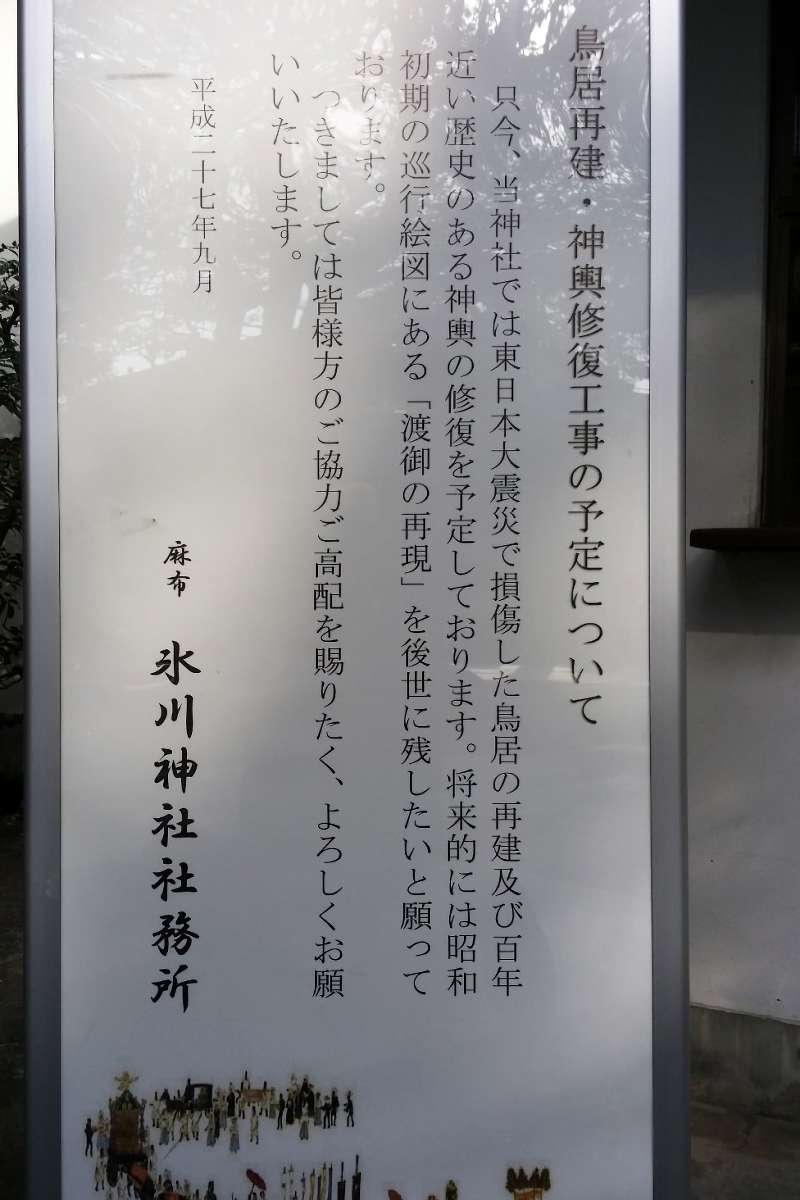 鳥居再建・神輿修復工事の予定について
只今、当神社では東日本大震災で損傷した鳥居の再建及び百年
近い歴史のある神輿の修復を予定しております。将来的には昭和
初期の巡行絵図にある「渡御の再現」を後世に残したいと願って
おります。
つきましては皆様方のご協力ご高配を賜りたく、よろしくお願
いいたします。
平成二十七年九月
麻布 氷川神社社務所